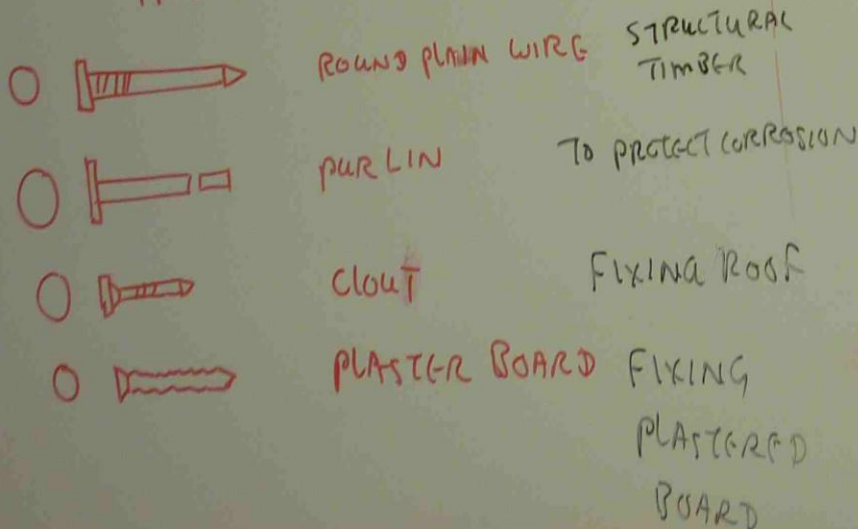 ROUND PLAIN WIRE STRUCTURAL
TIMBER
PURLIN TO PROTECT CORROSION
CLOUT FIXING ROOF
PLASTER BOARD FIXING
PLASTERED
BOARD